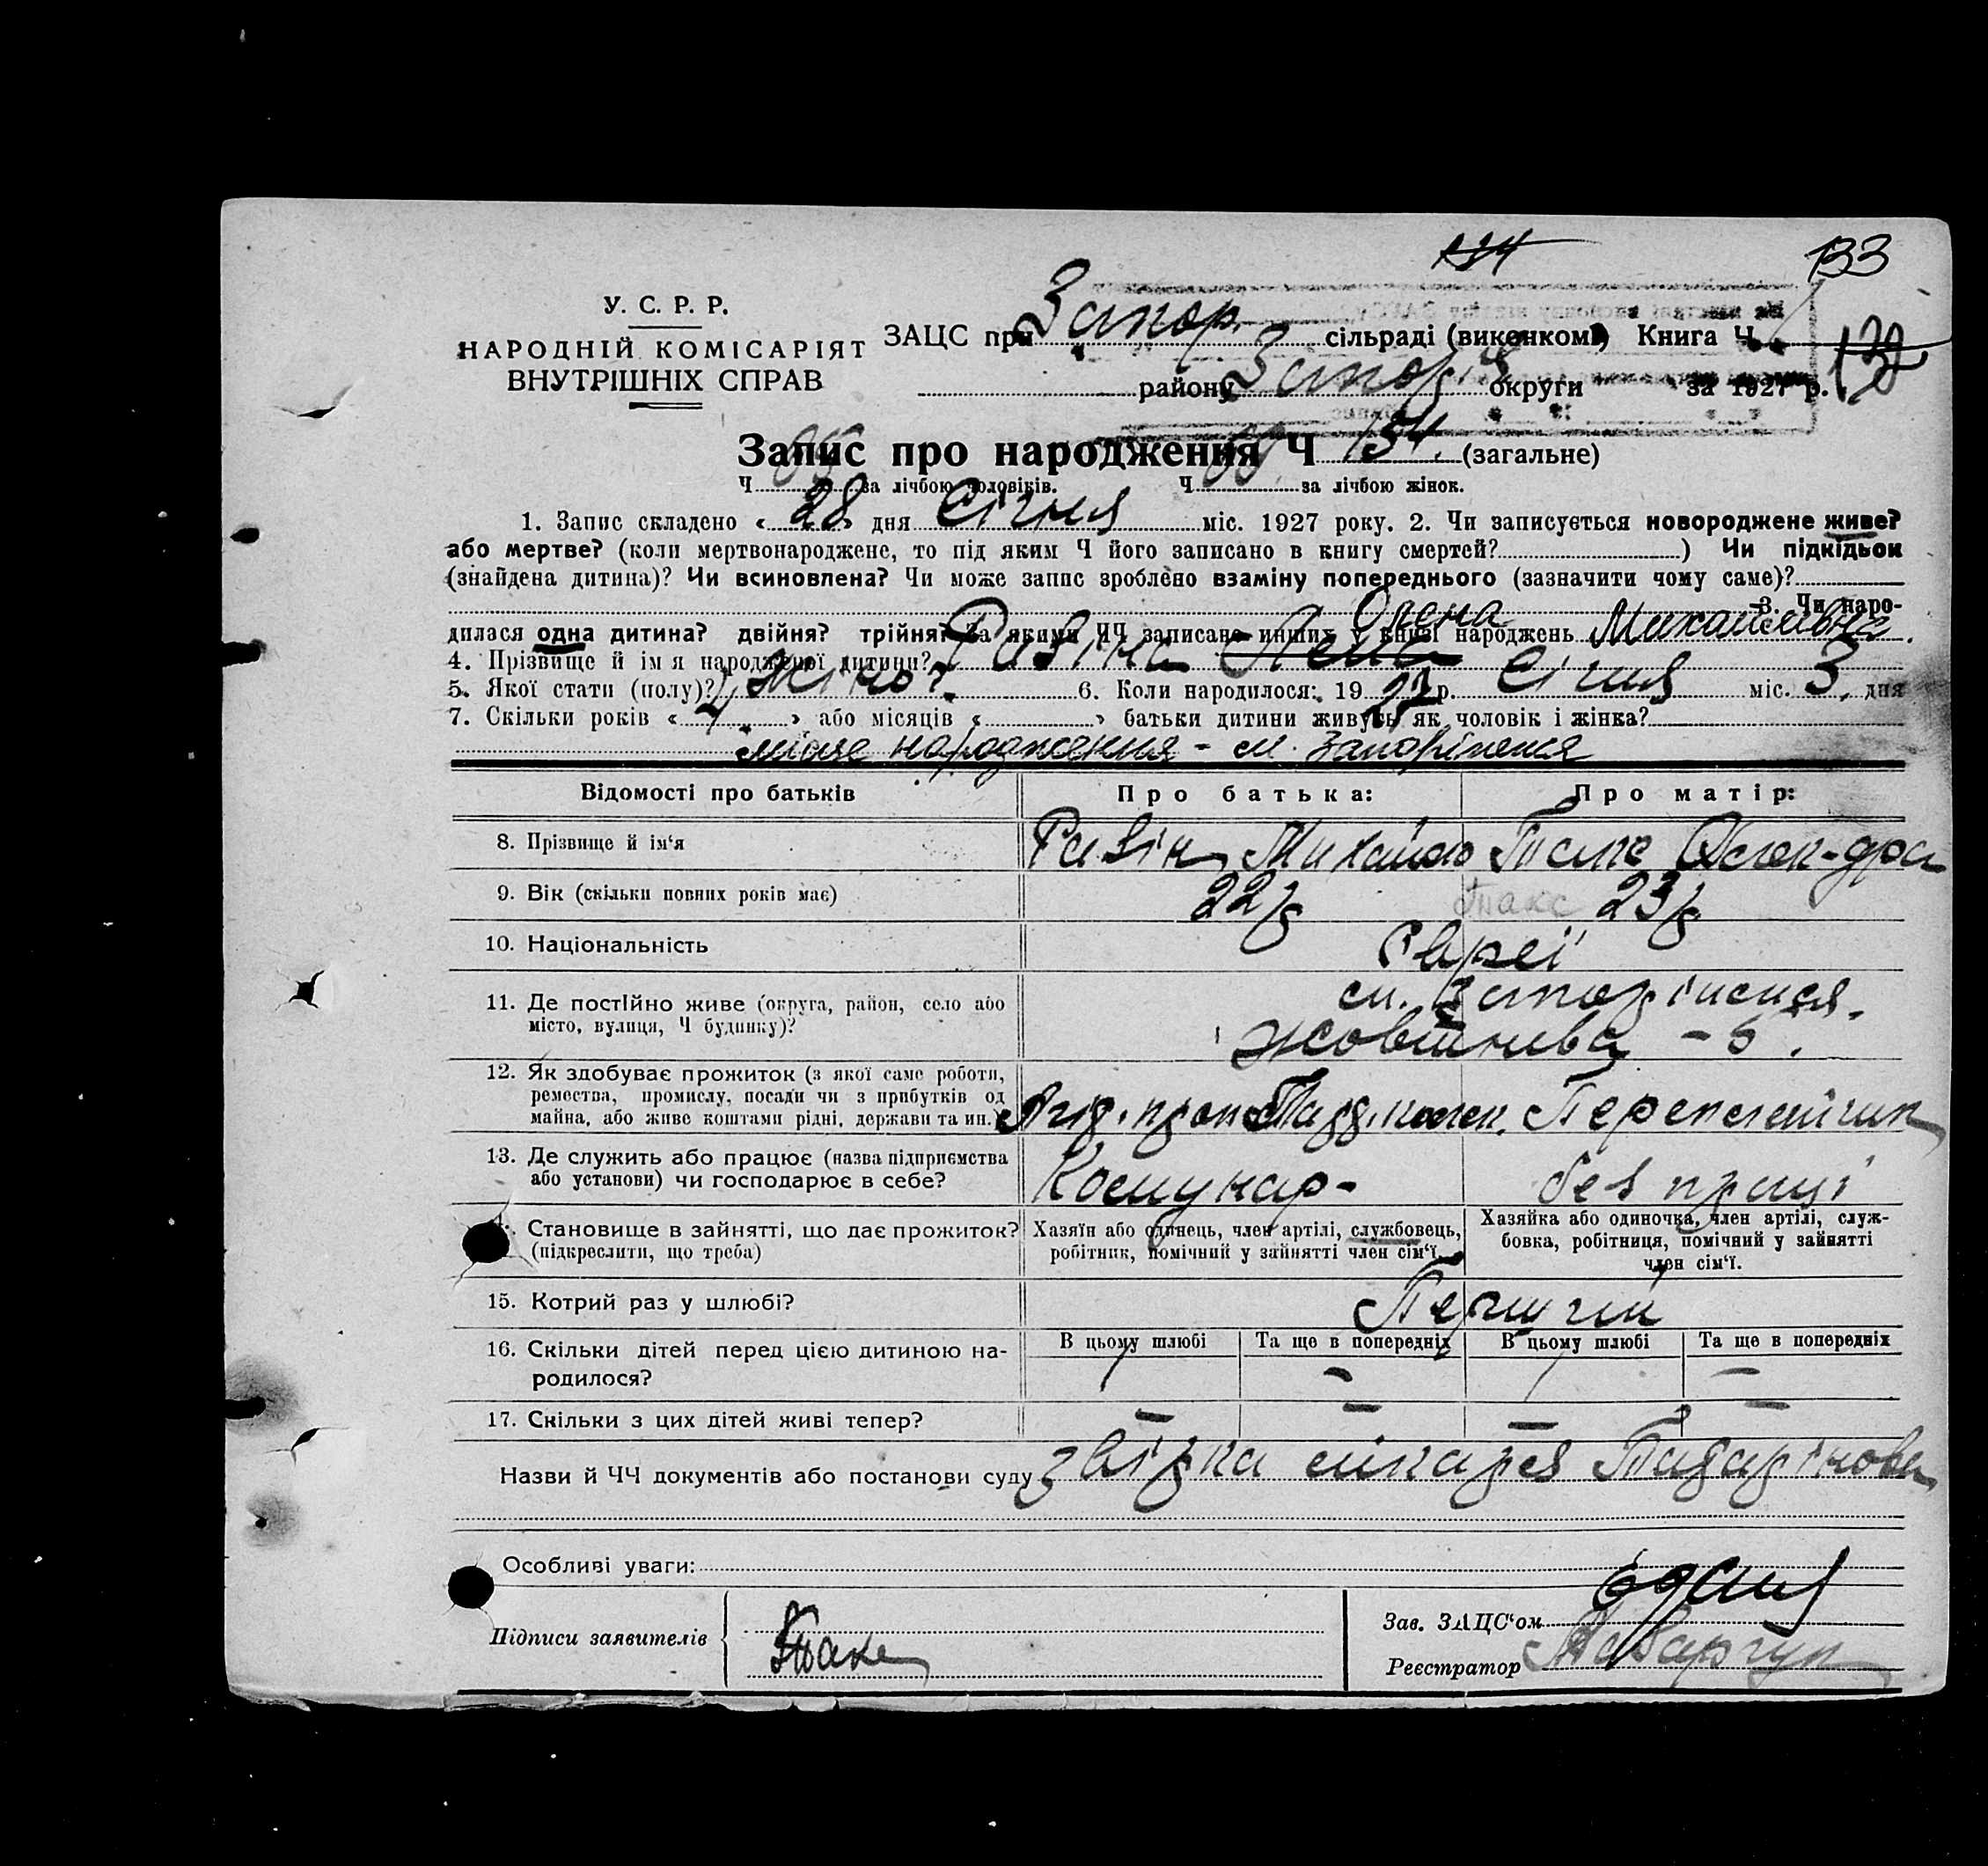 134 133
У. С. Р. Р.
НАРОДНІЙ КОМІСАРІЯТ
ВНУТРІШНІХ СПРАВ
ЗАЦС при Запор. сільраді (викенкомі) Книга Ч. 132
району Запоріз округи за 1927 р.
Запис про народження Ч 154. (загальне)
Ч за лічбою чоловіків. Ч 69 за лічбою жінок.
1. Запис складено « 28 » дня Січня міс. 1927 року. 2. Чи записується новороджене живе?
або мертве? (коли мертвонароджене, то під яким Ч його записано в книгу смертей? ) Чи підкідьок
(знайдена дитина)? Чи всиновлена? Чи може запис зроблено взаміну попереднього (зазначити чому саме)?
3. Чи наро-
дилася одна дитина? двійня? трійня? За якими ЧЧ записано инших у книзі народжень
4. Прізвище й ім я народженої дитини? Равіна Лена Олена Михайлівна.
5. Якої стати (полу)? Жіно?. 6. Коли народилося: 1927 р. Січня міс. 3 дня
7. Скільки років « 4 » або місяців « » батьки дитини живуть як чоловік і жінка?
місце народження - м. Запоріжжя
Відомості про батьків Про батька: Про матір:
8. Прізвище й ім'я Равін Михайло Такс Олек-дра
9. Вік (скільки повних років має) 22 р Такс 23 р
10. Національність Євреї
11. Де постійно живе (округа, район, село або м. Запоріжжя.
місто, вулиця, Ч будинку)? Жовтнева - 5.
12. Як здобуває прожиток (з якої саме роботи,
ремества, промислу, посади чи з прибутків од
майна, або живе коштами рідні, держави та ин.)
13. Де служить або працює (назва підприємства Комунар- без праці
або установи) чи господарює в себе?
Становище в зайнятті, що дає прожиток? Хазяїн або одинець, член артілі, службовець, Хазяйка або одиночка, член артілі, служ-
(підкреслити, що треба) робітник, помічний у зайнятті член сім'ї. бовка, робітниця, помічний у зайнятті
член сім'ї.
15. Котрий раз у шлюбі? Перший
16. Скільки дітей перед цією дитиною на- В цьому шлюбі Та ще в попередніх В цьому шлюбі Та ще в попередніх
родилося? 1 – 1 –
17. Скільки з цих дітей живі тепер? – – – –
Назви й ЧЧ документів або постанови суду звірка лікаря
Особливі уваги:
Підписи заявителів Такс
Зав. ЗАЦС'ом
Реєстратор